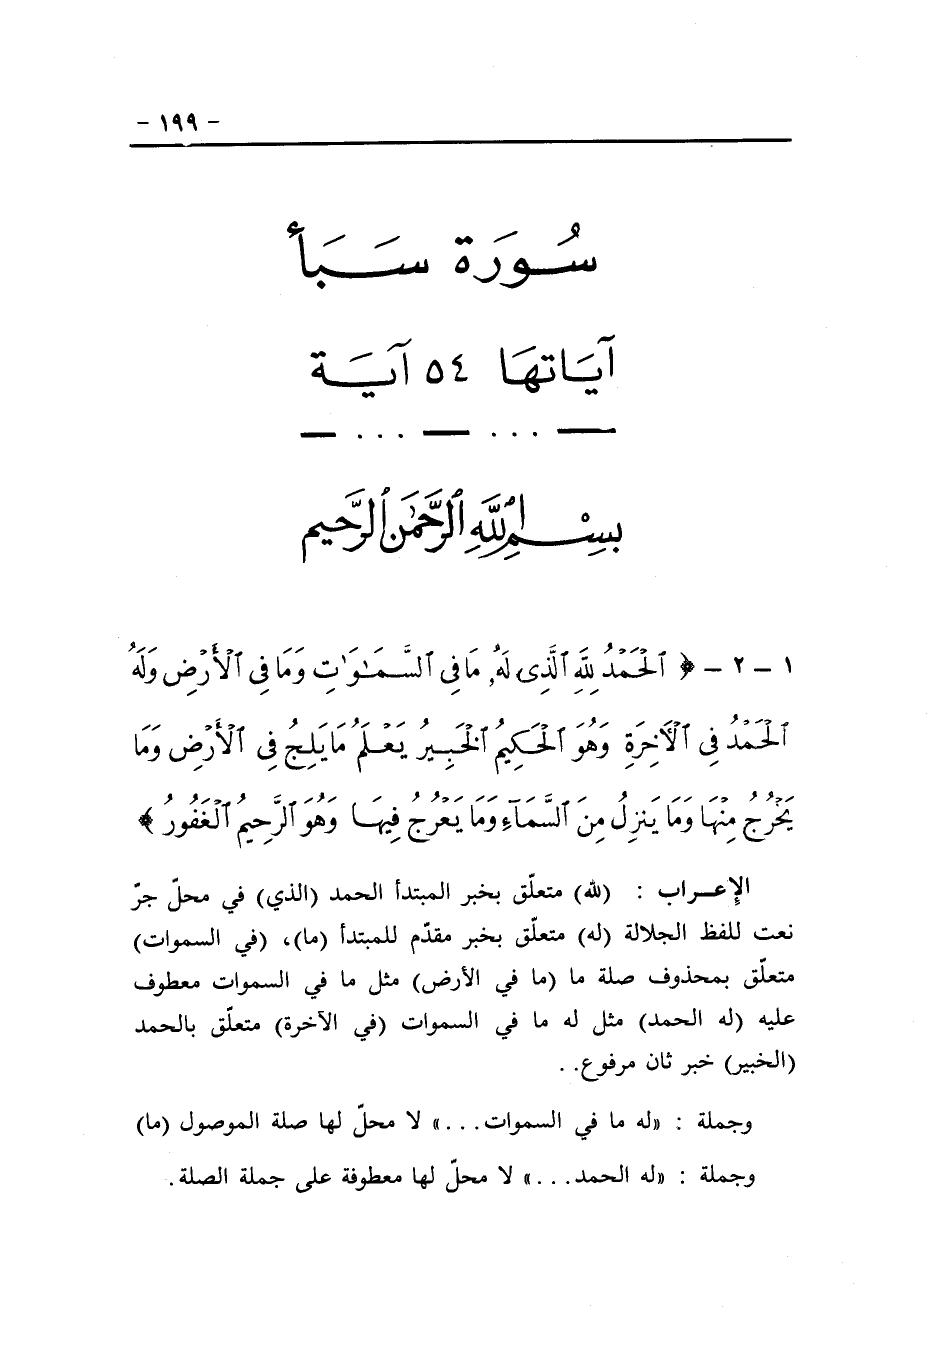 - ١٩٩ -
سُورَة سَبَأ
آيَاتهَا ٥٤ آيَة
بِسْمِ ٱللَّهِ ٱلرَّحْمَٰنِ ٱلرَّحِيمِ
١ - ٢ - ﴿ ٱلْحَمْدُ لِلَّهِ ٱلَّذِى لَهُۥ مَا فِى ٱلسَّمَٰوَٰتِ وَمَا فِى ٱلْأَرْضِ وَلَهُ
ٱلْحَمْدُ فِى ٱلْأَخِرَةِ وَهُوَ ٱلْحَكِيمُ ٱلْخَبِيرُ يَعْلَمُ مَا يَلِجُ فِى ٱلْأَرْضِ وَمَا
يَخْرُجُ مِنْهَا وَمَا يَنزِلُ مِنَ ٱلسَّمَآءِ وَمَا يَعْرُجُ فِيهَا وَهُوَ ٱلرَّحِيمُ ٱلْغَفُورُ ﴾
الإعراب : (لله) متعلّق بخبر المبتدأ الحمد (الذي) في محلّ جرّ
نعت للفظ الجلالة (له) متعلّق بخبر مقدّم للمبتدأ (ما)، (في السموات)
متعلّق بمحذوف صلة ما (ما في الأرض) مثل ما في السموات معطوف
عليه (له الحمد) مثل له ما في السموات (في الآخرة) متعلّق بالحمد
(الخبير) خبر ثان مرفوع. .
وجملة : «له ما في السموات. . .» لا محلّ لها صلة الموصول (ما)
وجملة : «له الحمد. . .» لا محلّ لها معطوفة على جملة الصلة.